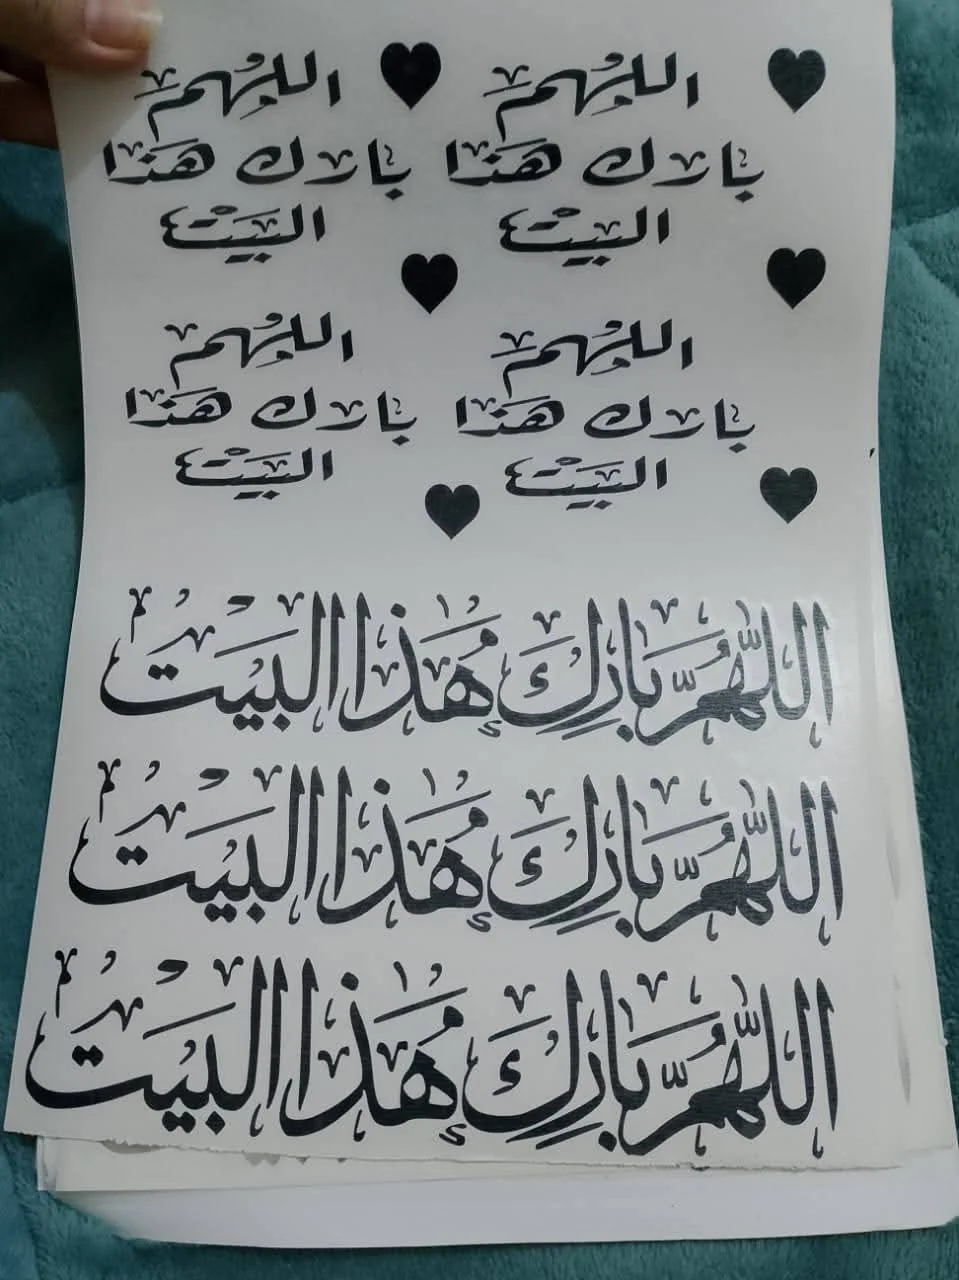 اللهم
بارك هذا
البيت
اللهم
بارك هذا
البيت
اللهم
بارك هذا
البيت
اللهم
بارك هذا
البيت
اللهم بارك هذا البيت
اللهم بارك هذا البيت
اللهم بارك هذا البيت